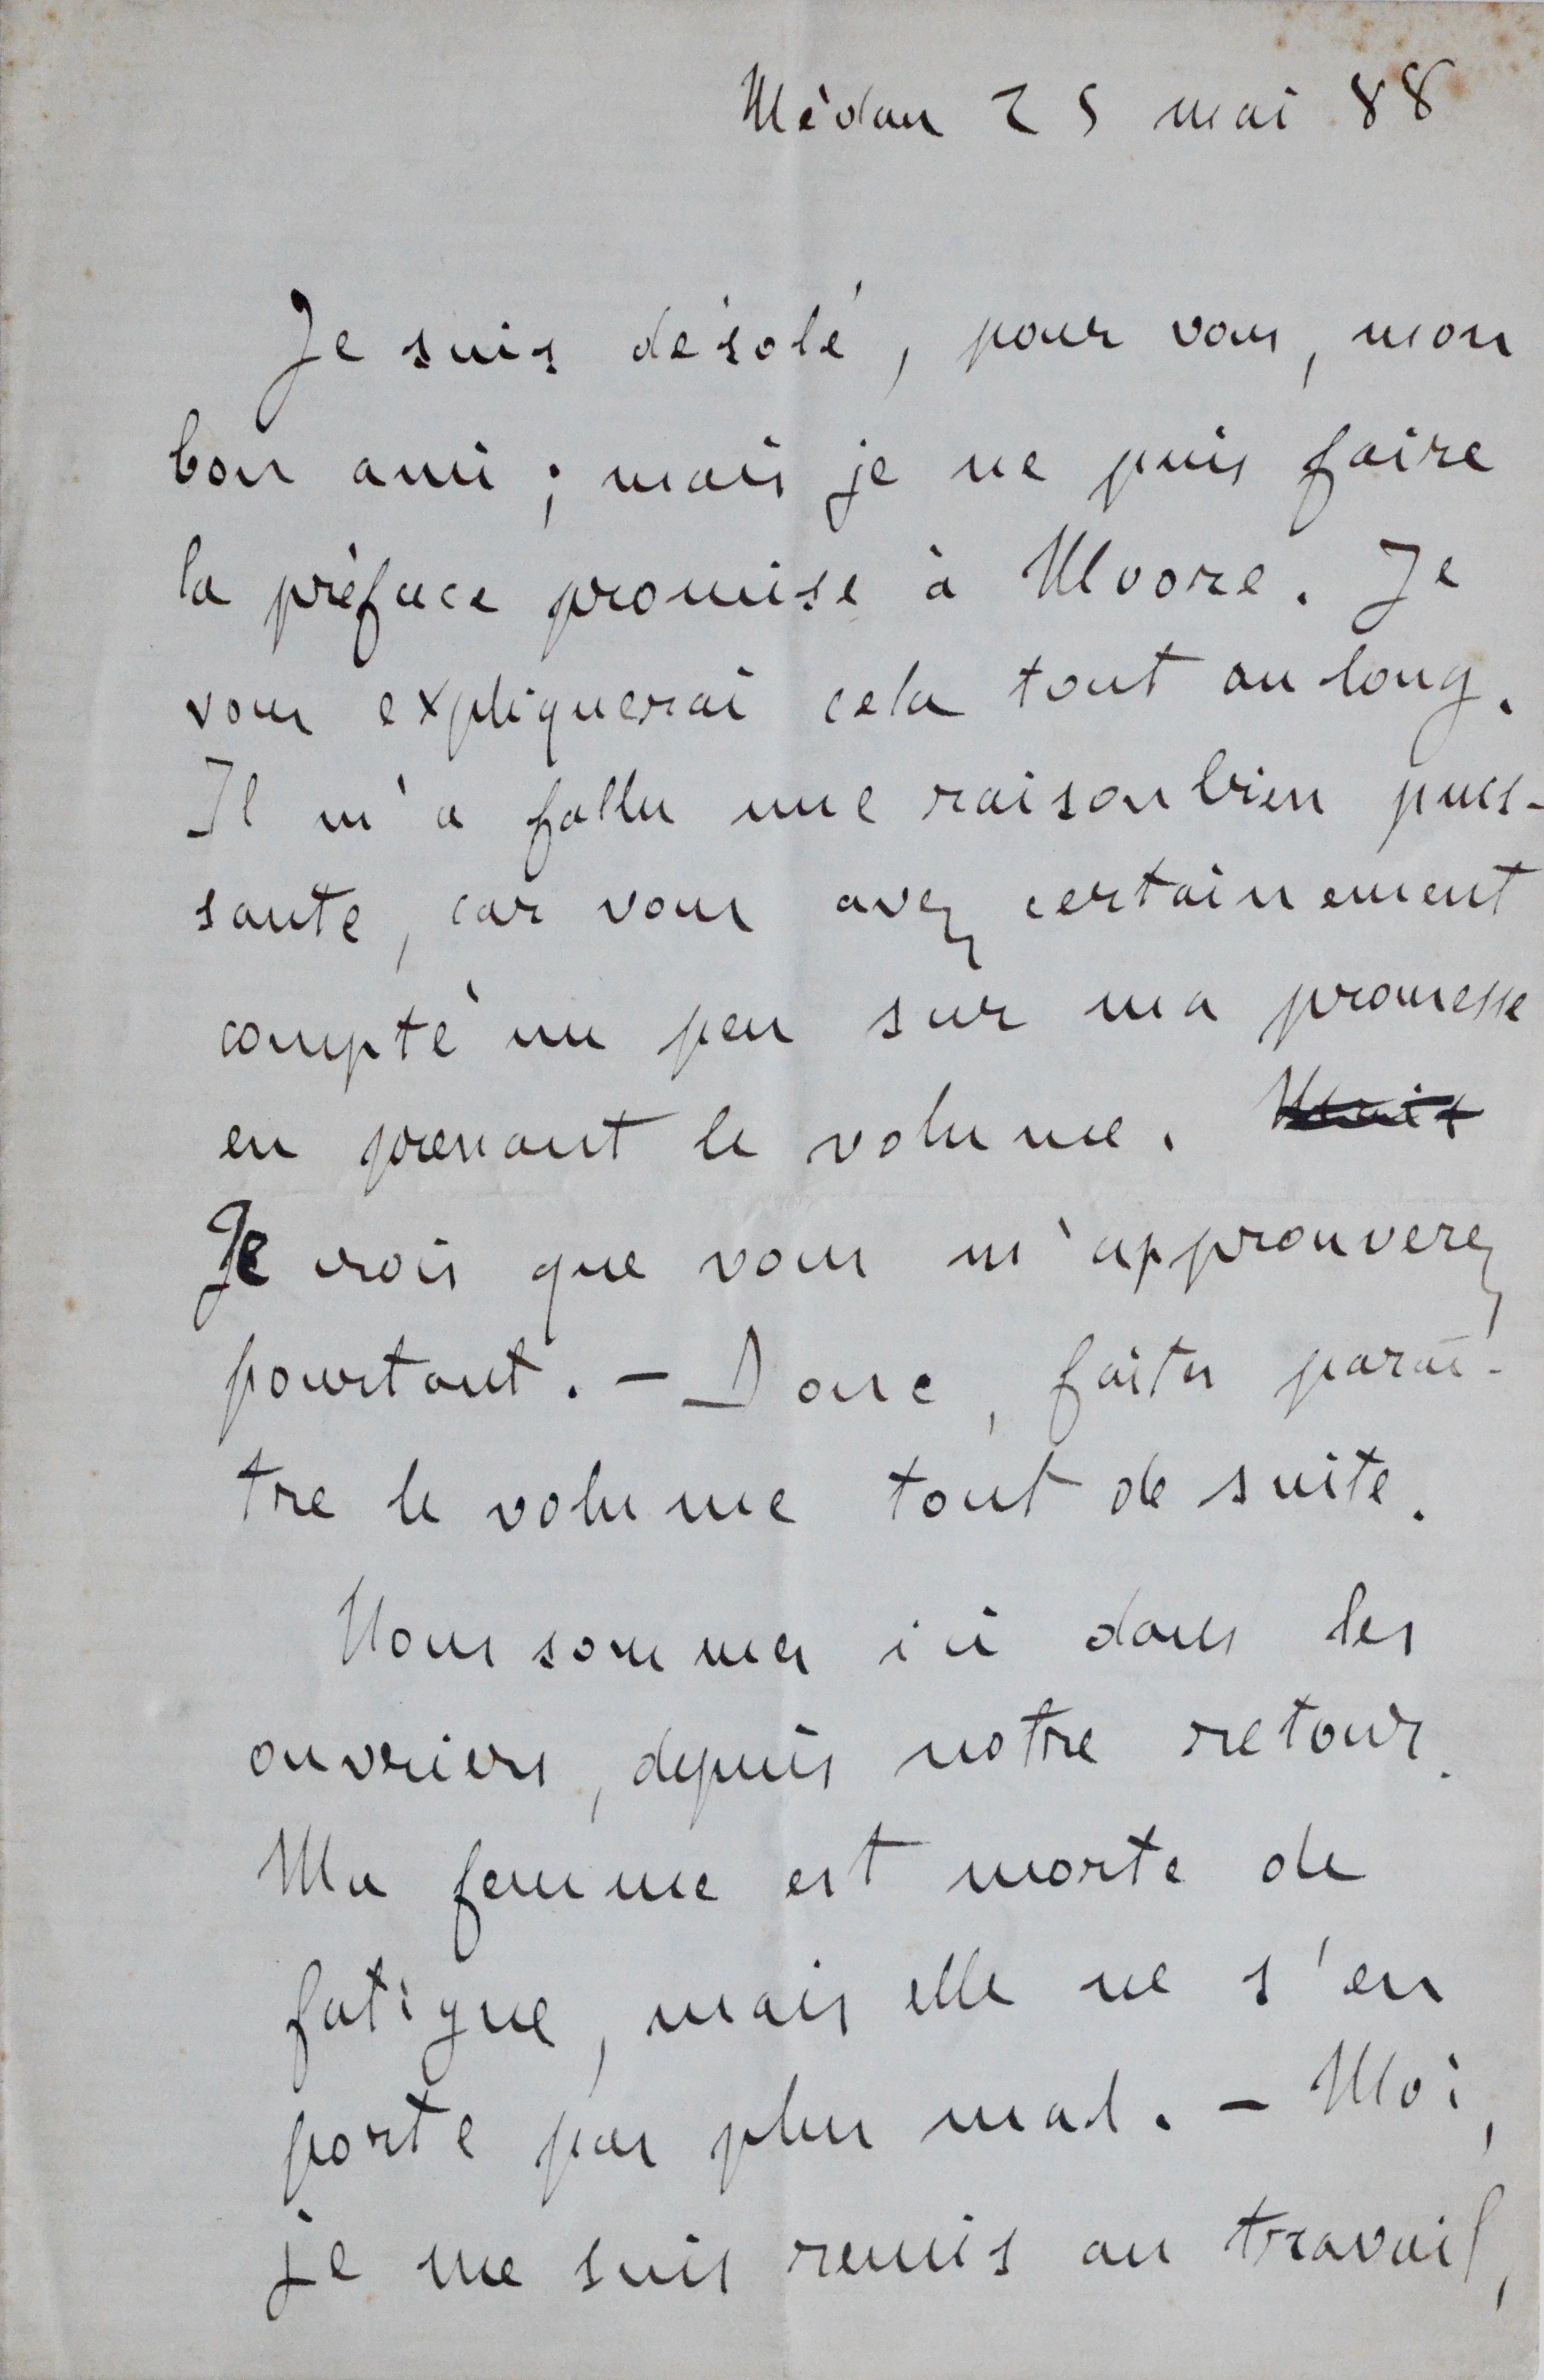 Médan 25 mai 88
Je suis désolé, pour vous, mon
bon ami ; mais je ne puis faire
la préface promise à Moore. Je
vous expliquerai cela tout au long.
Il m'a fallu une raison bien puis-
sante, car vous avez certainement
compté un peu sur ma promesse
en prenant le volume. Mais
Je crois que vous m'approuverez
pourtant. — Donc, faites paraî-
tre le volume tout de suite.
Nous sommes ici dans les
ouvriers, depuis notre retour.
Ma femme est morte de
fatigue, mais elle ne s'en
porte pas plus mal. — Moi,
je me suis remis au travail,